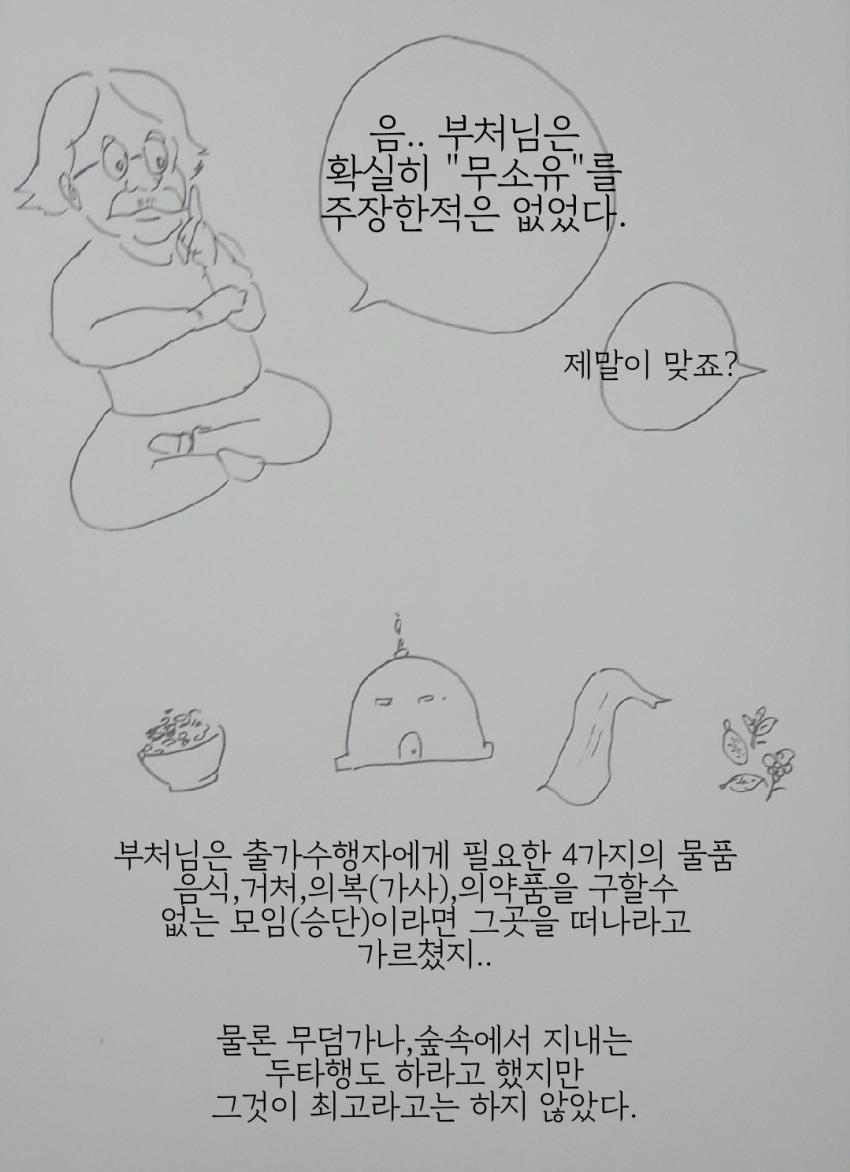 음.. 부처님은
확실히 "무소유"를
주장한적은 없었다.
제말이 맞죠?
부처님은 출가수행자에게 필요한 4가지의 물품
음식,거처,의복(가사),의약품을 구할수
없는 모임(승단)이라면 그곳을 떠나라고
가르쳤지..
물론 무덤가나,숲속에서 지내는
두타행도 하라고 했지만
그것이 최고라고는 하지 않았다.